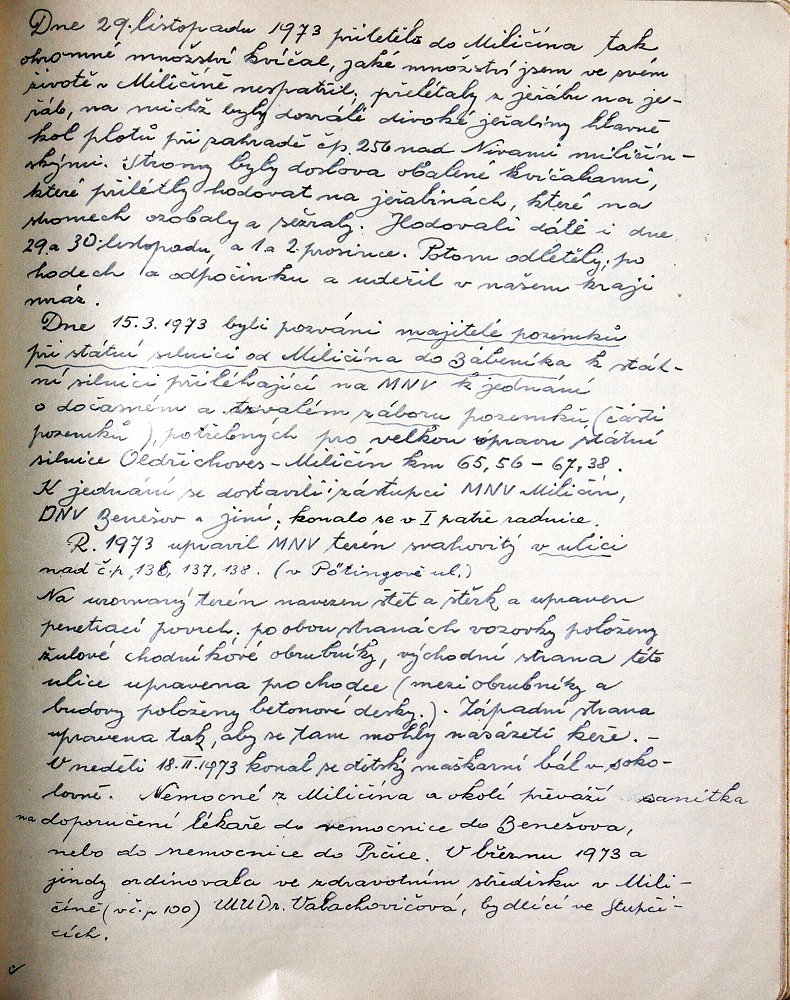 Dne 29. listopadu 1973 přiletělo do Miličína tak
ohromné množství kvíčal, jaké množství jsem ve svém
životě v Miličíně nespatřil. přelétaly z jeřábu na je-
řáb, na nichž byly dozrálé divoké jeřabiny hlavně
kol plotů při zahradě čp. 256 nad Nivami miličín-
skými. Stromy byly doslova obalené kvíčalami,
které přilétly hodovat na jeřabinách, které na
stromech ozobaly a sežraly. Hodovali dále i dne
29. a 30. listopadu, a 1. a 2. prosince. Potom odletěly, po
hodech a odpočinku a udeřil v našem kraji
mráz.
Dne 15.3.1973 byli pozváni majitelé pozemků
při státní silnici od Miličína do Záběníka k stát-
ní silnici přiléhající na MNV k jednání
o dočasném a trvalém záboru pozemků, (části
pozemků), potřebných pro velkou úpravu státní
silnice Oldřichovec - Miličín km 65,56 - 67,38.
K jednání se dostavili: zástupci MNV Miličín,
ONV Benešov a jiní, konalo se v I patře radnice.
R. 1973 upravil MNV terén svahovitý v ulici
nad č.p, 136, 137, 138. (v Pötingově ul.)
Na urovnaný terén navezen štět a štěrk a upraven
penetrací povrch. po obou stranách vozovky položeny
žulové chodníkové obrubníky, východní strana této
ulice upravena pro chodce (mezi obrubníky a
budovy položeny betonové desky.). Západní strana
upravena tak, aby se tam mohly nasázeti keře. -
V neděli 18.II.1973 konal se dětský maškarní bál v soko-
lovně. Nemocné z Miličína a okolí převáží sanitka
na doporučení lékaře do nemocnice do Benešova,
nebo do nemocnice do Prčice. V březnu 1973 a
jindy ordinovala ve zdravotním středisku v Mili-
číně (v č.p 100) MUDr. Valachovičová, bydlící ve Stupči-
cích.